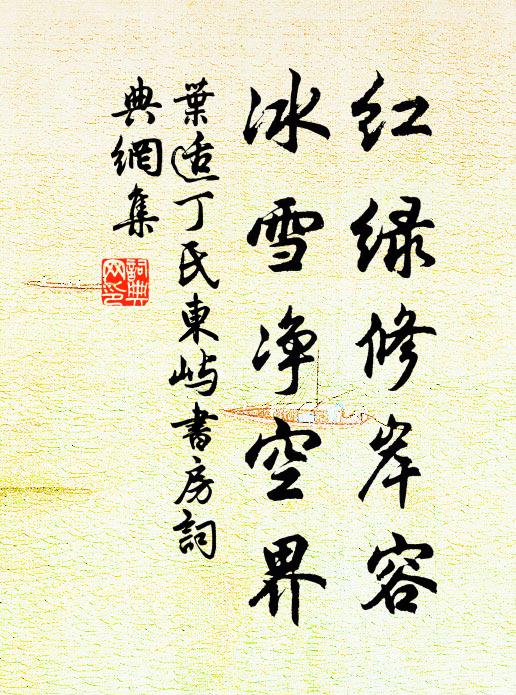 红绿修岸容
冰雪净空界
葉适丁氏東屿書房詞
典網集
詞典网印